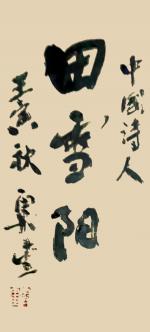 中國詩人
田雪阳
壬寅秋